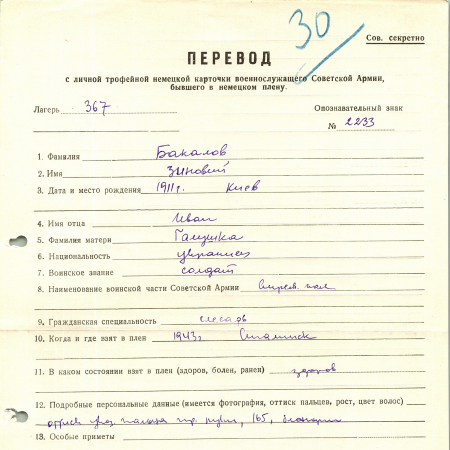 30
Сов. секретно
ПЕРЕВОД
с личной трофейной немецкой карточки военнослужащего Советской Армии,
бывшего в немецком плену.
Лагерь 367 Опознавательный знак
№ 2233
1. Фамилия Бакалов
2. Имя Зиновий
3. Дата и место рождения 1911г. Киев
4. Имя отца Иван
5. Фамилия матери Галушка
6. Национальность украинец
7. Воинское звание солдат
8. Наименование воинской части Советской Армии
9. Гражданская специальность слесарь
10. Когда и где взят в плен 1943г
11. В каком состоянии взят в плен (здоров, болен, ранен) здоров
12. Подробные персональные данные (имеется фотография, оттиск пальцев, рост, цвет волос)
пальца пр. руки, 165,
13. Особые приметы